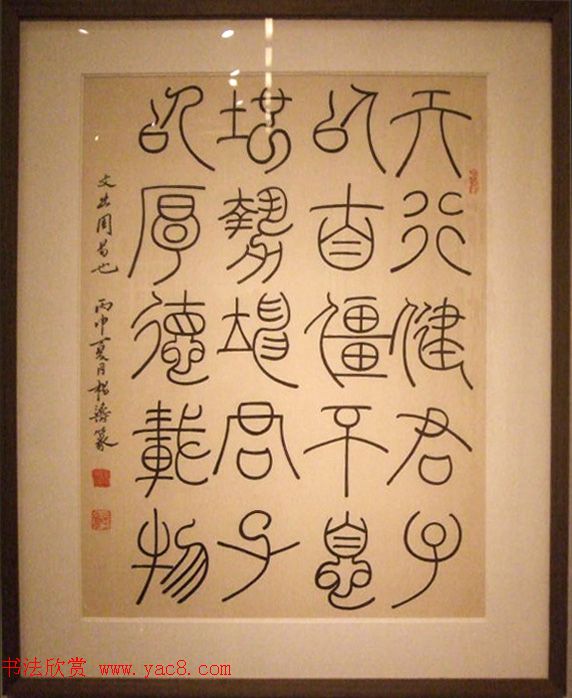 天行健君子
以自僵不息
地勢坤君子
以厚德載物
文出周易也 丙申夏月 篆
书法欣赏 www.yac8.com